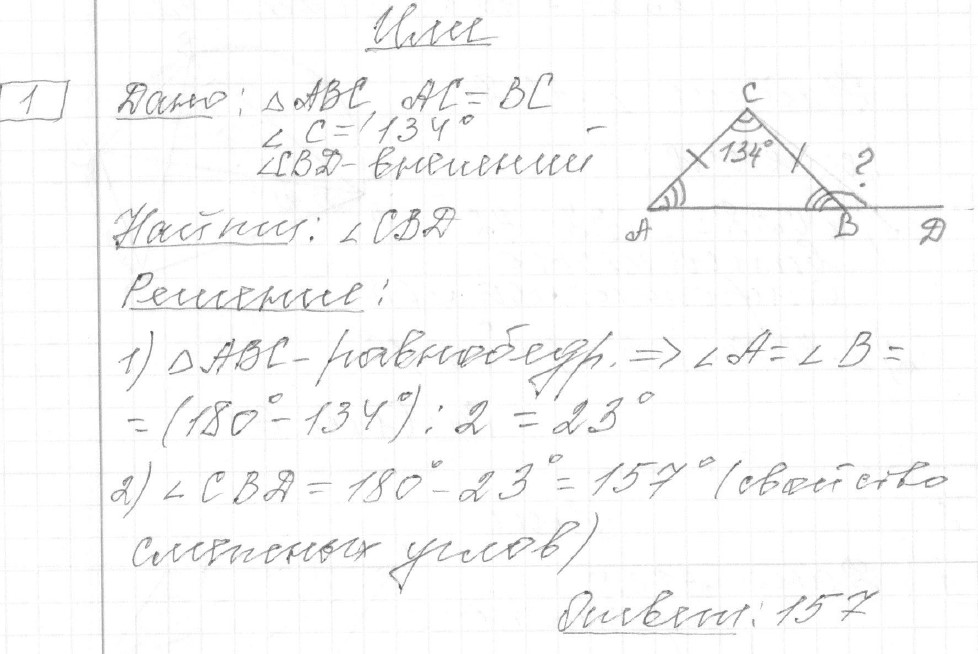 Или
1
Дано: △ABC, AC = BC
∠C = 134°
∠CBD - внешний
Найти: ∠CBD
Решение:
1) △ABC - равнобедр. => ∠A = ∠B =
= (180° - 134°) : 2 = 23°
2) ∠CBD = 180° - 23° = 157° (свойство
смежных углов)
Ответ: 157
C
134°
?
A
B
D